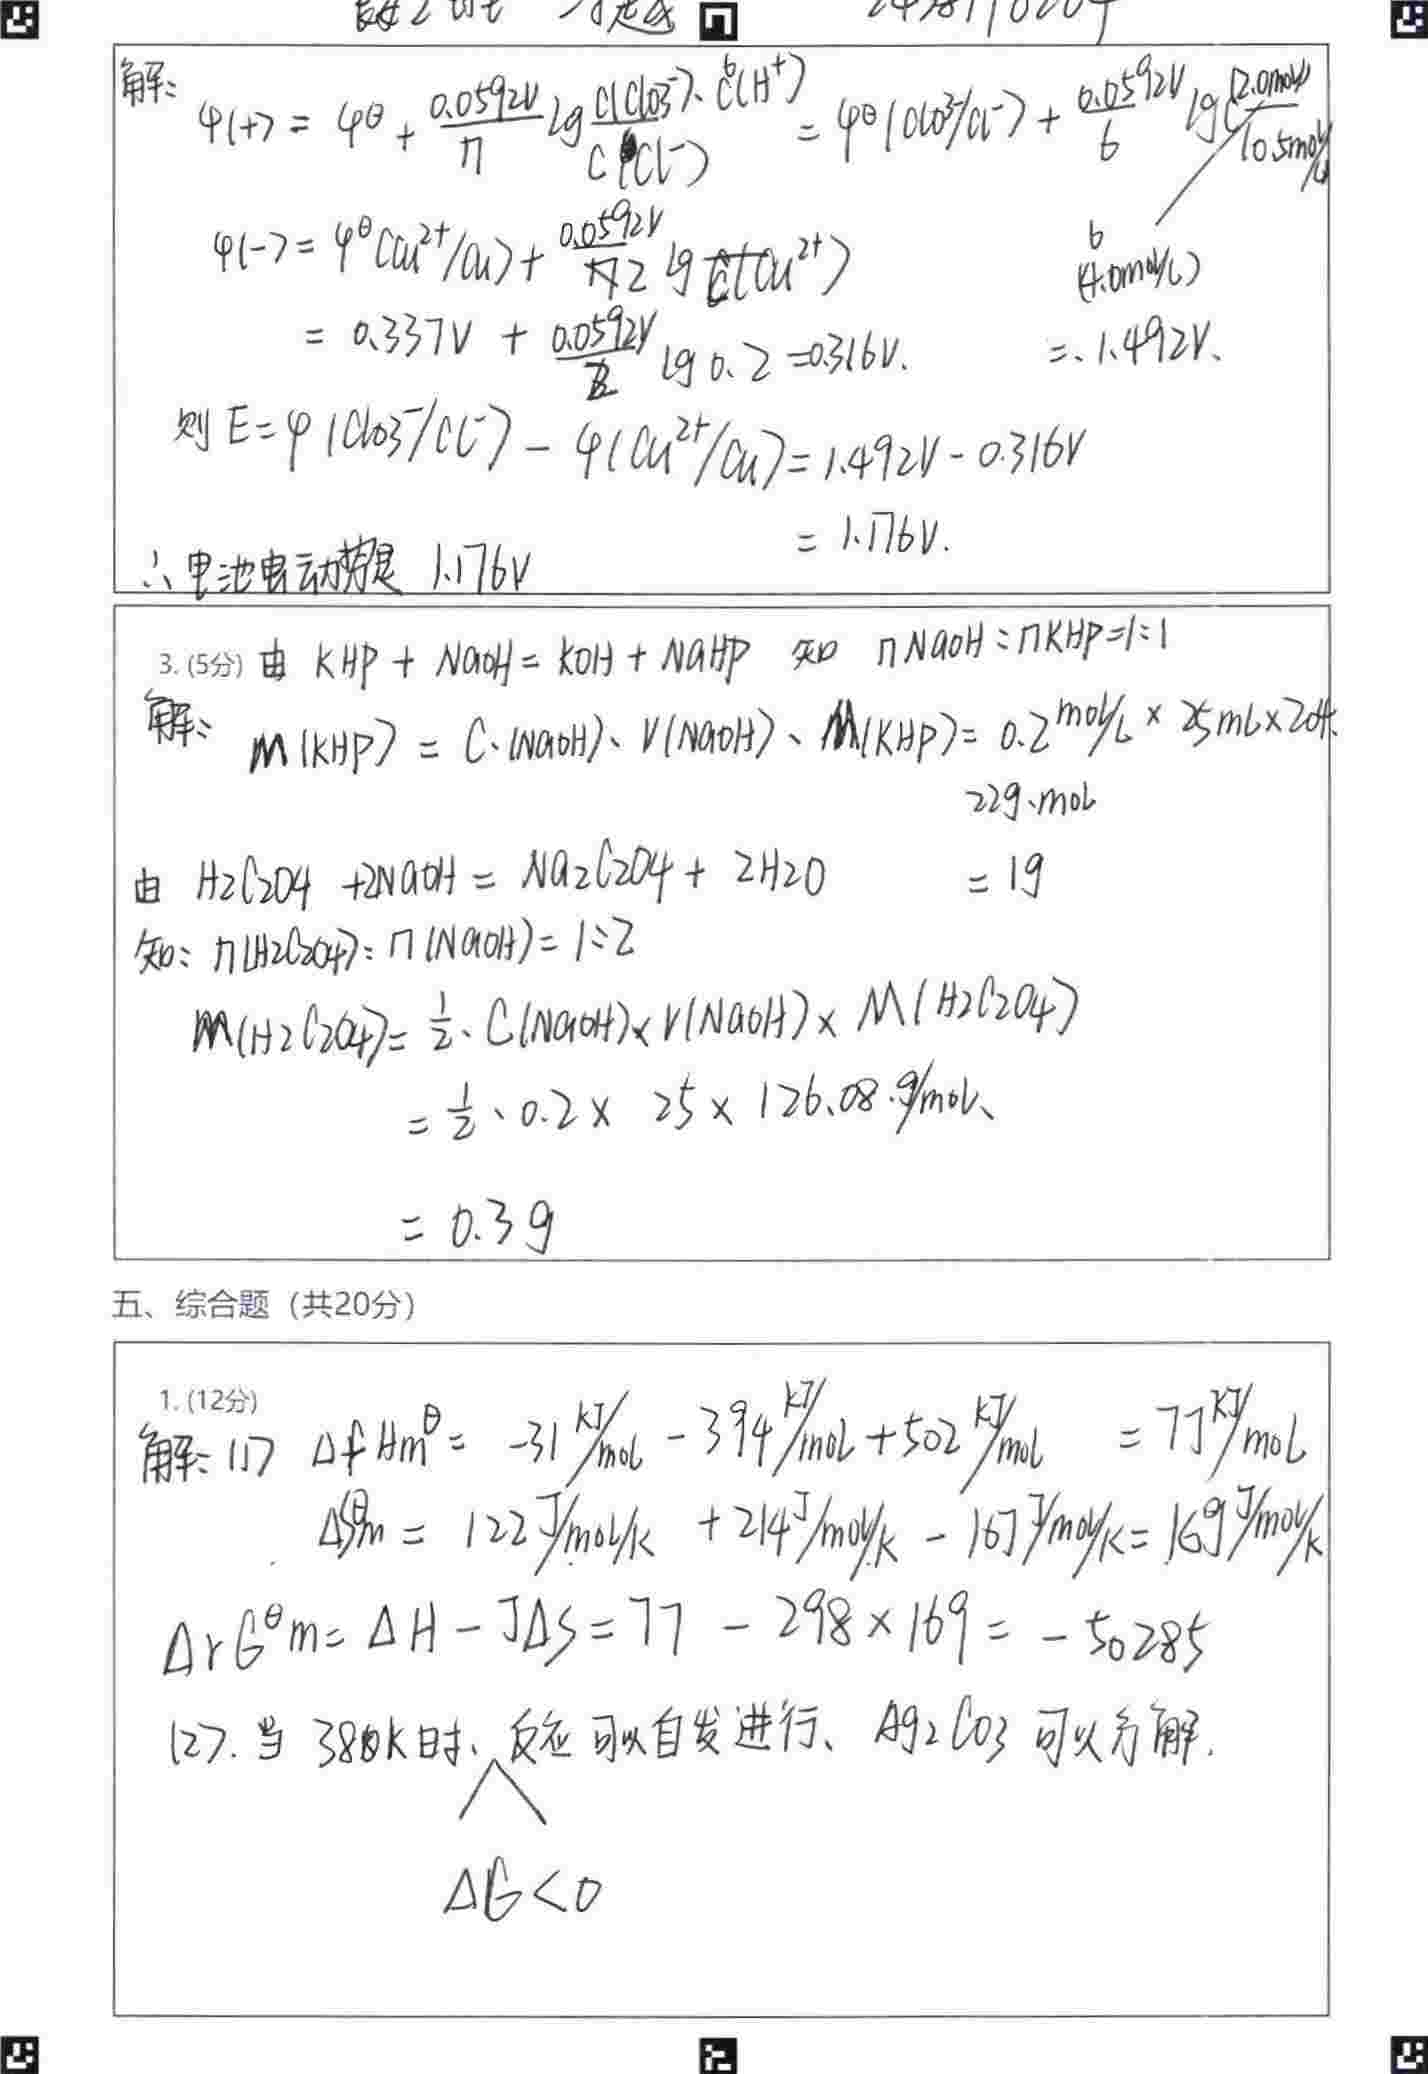 解:
φ(+) = φθ + 0.0592V/n lg c(ClO3⁻)·c⁶(H⁺)/c(Cl⁻) = φθ(ClO3⁻/Cl⁻) + 0.0592V/6 lg (2.0mol/L) (4.0mol/L)⁶/(0.5mol/L)
φ(-) = φθ(Cu²⁺/Cu) + 0.0592V/2 lg c(Cu²⁺)
= 0.337V + 0.0592V/2 lg 0.2 = 0.316V.
=.1.492V.
则 E = φ(ClO3⁻/Cl⁻) - φ(Cu²⁺/Cu) = 1.492V - 0.316V
= 1.176V.
∴ 电池电动势是 1.176V
3. (5分) 由 KHP + NaOH = KOH + NaHP 知 n NaOH : n KHP = 1:1
解:
m(KHP) = C·(NaOH)·V(NaOH)·M(KHP) = 0.2mol/L × 25mL × 204.
22g·mol
由 H2C2O4 + 2NaOH = Na2C2O4 + 2H2O
= 1g
知: n(H2C2O4): n(NaOH) = 1:2
m(H2C2O4) = 1/2 · C(NaOH) × V(NaOH) × M(H2C2O4)
= 1/2 · 0.2 × 25 × 126.08.g/mol.
= 0.3g
五、综合题（共20分）
1. (12分)
解: (1) ΔfHmθ = -31kJ/mol - 394kJ/mol + 502kJ/mol = 77kJ/mol
ΔSθm = 122J/mol/K + 214J/mol/K - 167J/mol/K = 169J/mol/K
ΔrGθm = ΔH - TΔS = 77 - 298 × 169 = -50285
(2). 当 380K时、反应可以自发进行、Ag2CO3 可以分解.
ΔG < 0